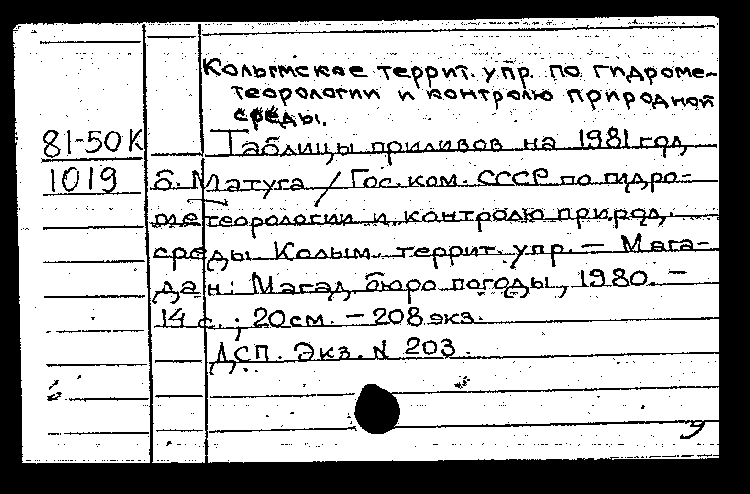 Колымское террит. упр. по гидроме-
теорологии и контролю природной
среды.
81-50К
1019
Таблицы приливов на 1981 год,
б. Матуга / Гос. ком. СССР по гидро-
метеорологии и контролю природ.
среды Колым. террит. упр. – Мага-
дан: Магад. бюро погоды, 1980. –
14 с.; 20 см. – 208 экз.
ДСП. Экз. N 203.